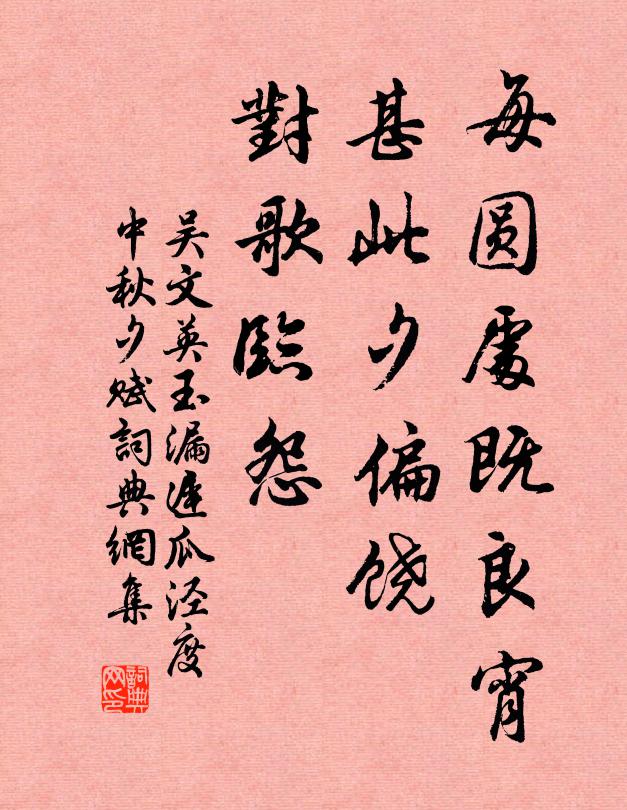 每圆處既良宵
甚此夕偏饶
對歌臨怨
吴文英玉漏迟瓜泾度
中秋夕赋詞典網集
詞典网印